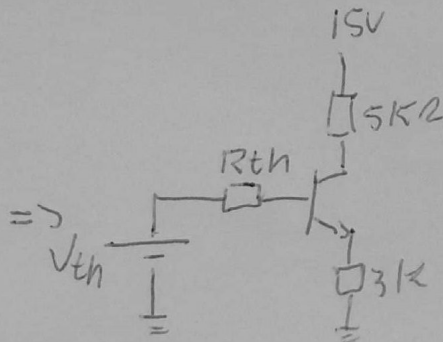 15V
5KΩ
Rth
=>
Vth
3K